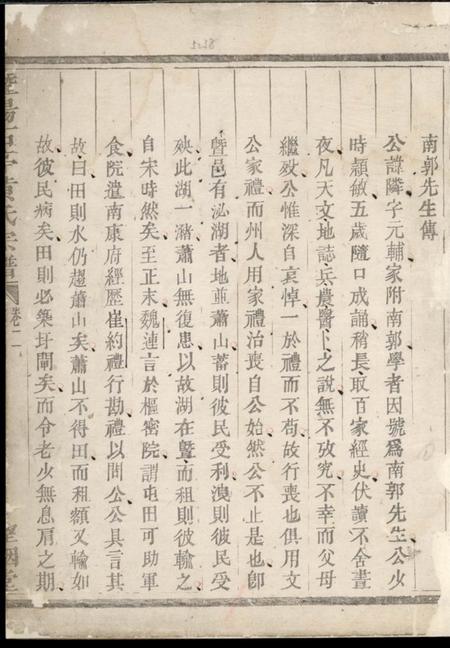 5238
南郭先生傳
公諱隣字元輔家附南郭學者因號爲南郭先生公少
時穎敏五歲隨口成誦稍長取百家經史伏讀不舍晝
夜凡天文地誌兵農醫卜之說無不攷究不幸而父母
繼歿公惟深自哀悼一於禮而不苟故行喪也俱用文
公家禮而州人用家禮治喪自公始然公不止是也卽
曁邑有泌湖者地並蕭山蓄則彼民受利洩則彼民受
殃此湖一瀦蕭山無復患以故湖在曁而租則彼輸之
自宋時然矣至正末魏連言於樞密院謂屯田可助軍
食院遣南康府經歷崔約禮行勘禮以問公公具言其
故曰田則水仍趨蕭山矣蕭山不得田而租額又輸如
故彼民病矣田則必築圩閘矣而令老少無息肩之期
黃氏宗譜 卷二